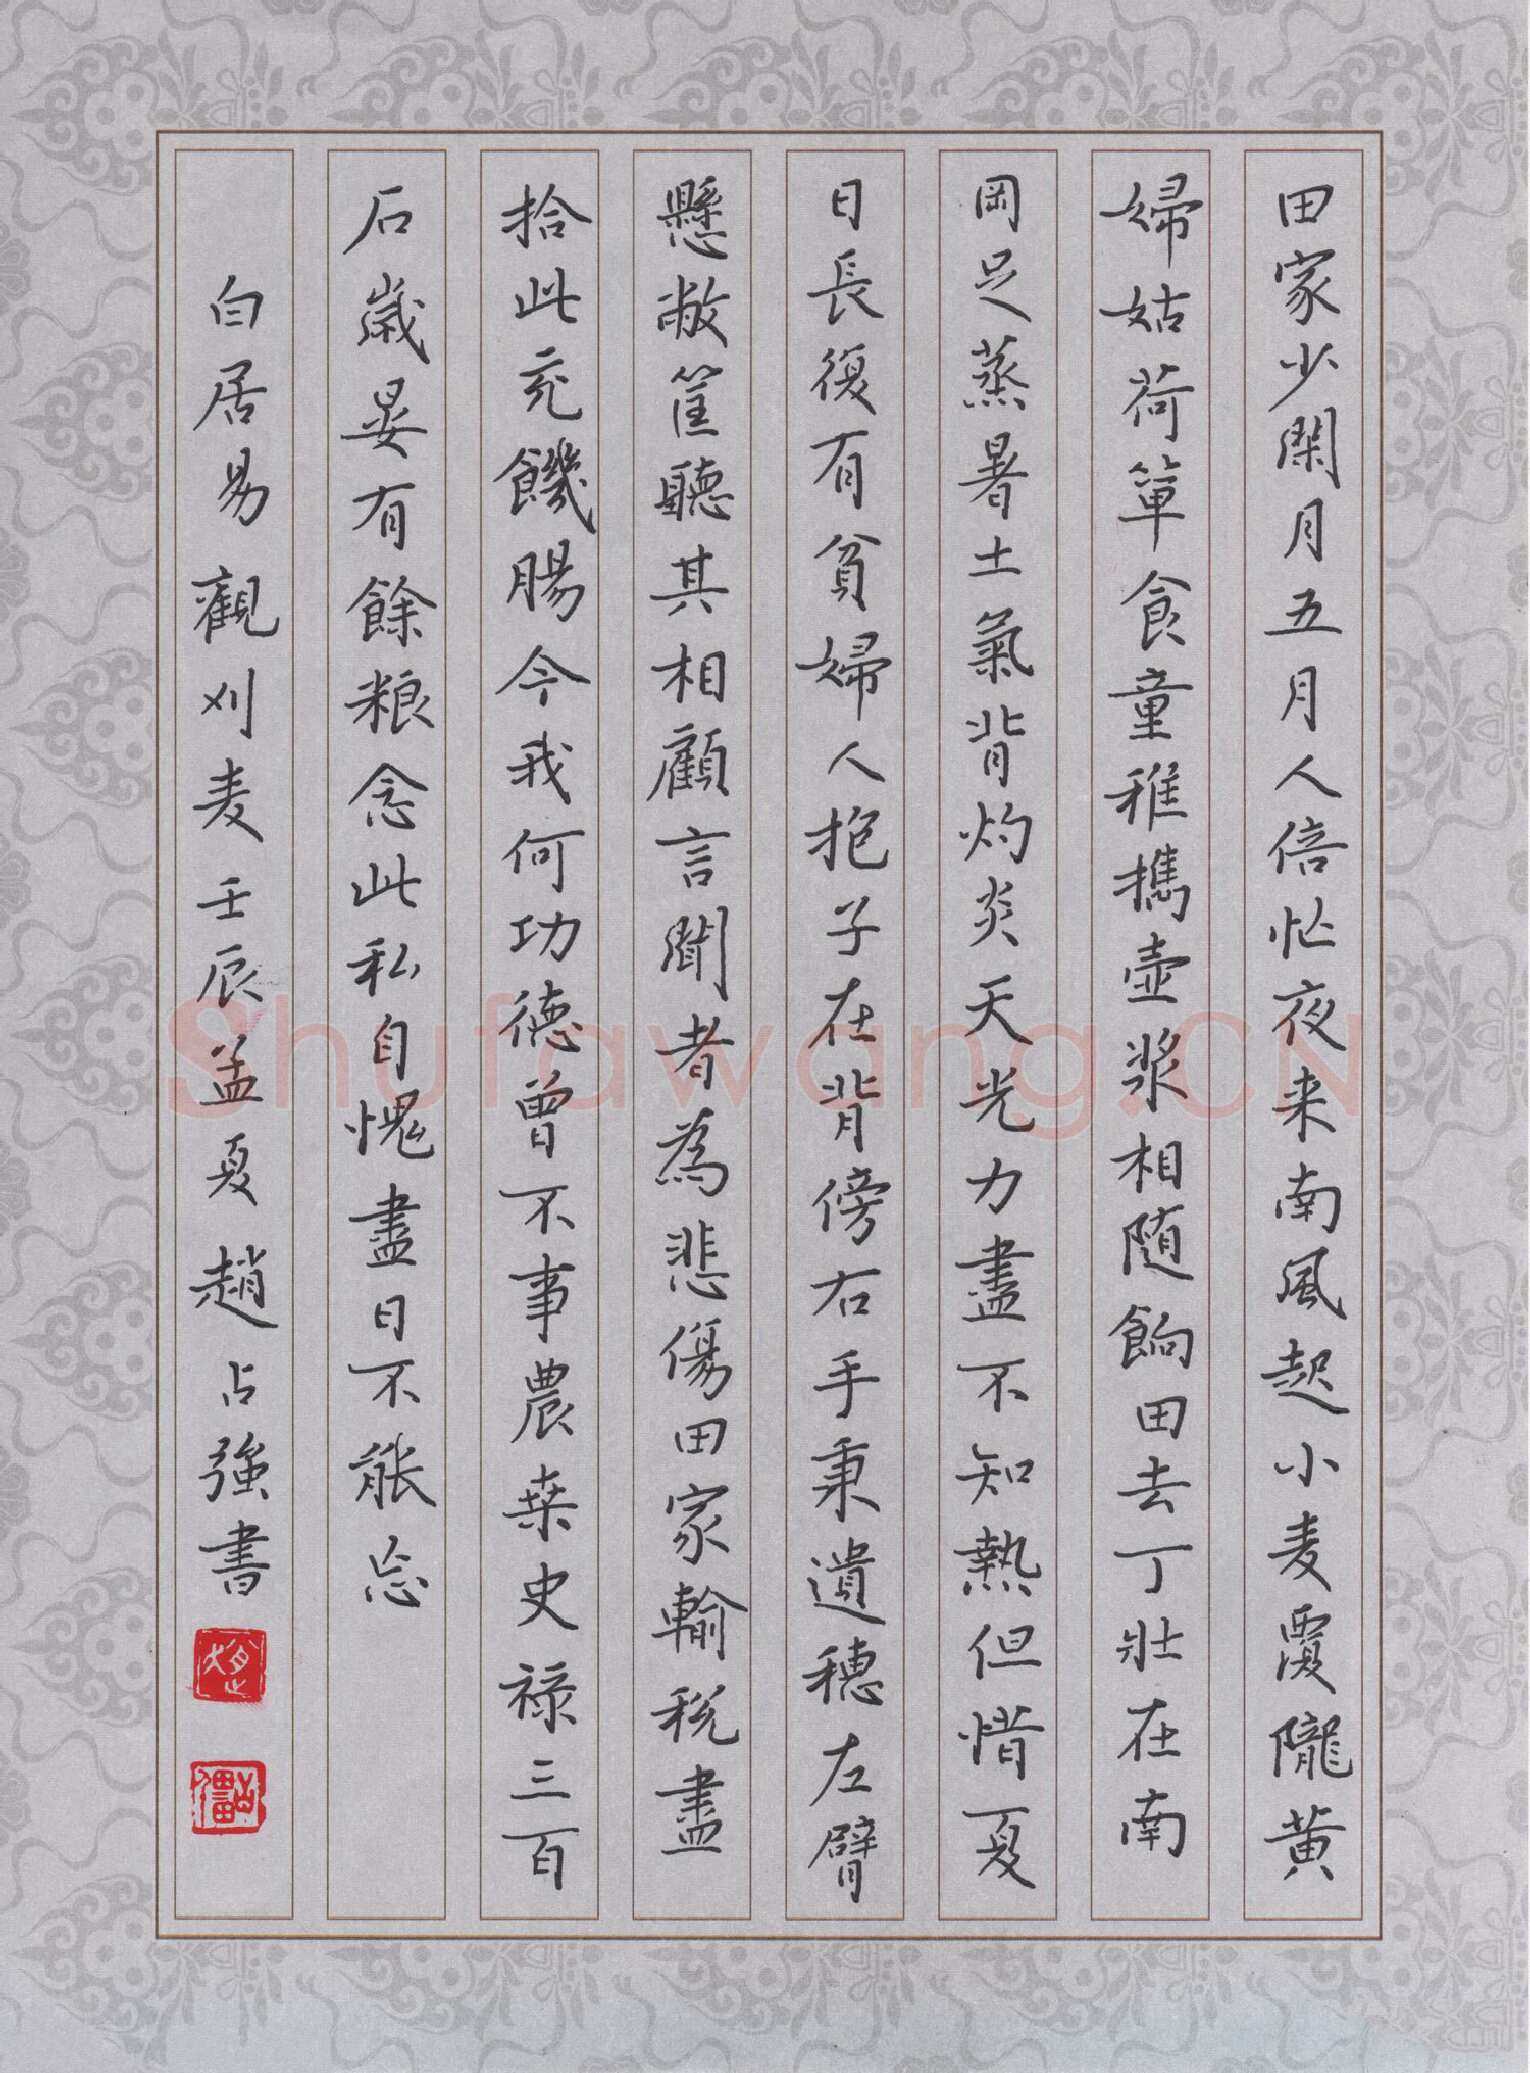 田家少閑月五月人倍忙夜来南風起小麦覆隴黄
婦姑荷箪食童稚攜壺漿相随餉田去丁壯在南
岡足蒸暑土氣背灼炎天光力盡不知熱但惜夏
日長復有貧婦人抱子在背傍右手秉遺穗左臂
懸敝筐聽其相顧言聞者為悲傷田家輸税盡
拾此充饑腸今我何功德曾不事農桒史禄三百
石歳晏有餘粮念此私自愧盡日不能忘
白居易觀刈麦壬辰孟夏趙占強書
Shufawang.CN